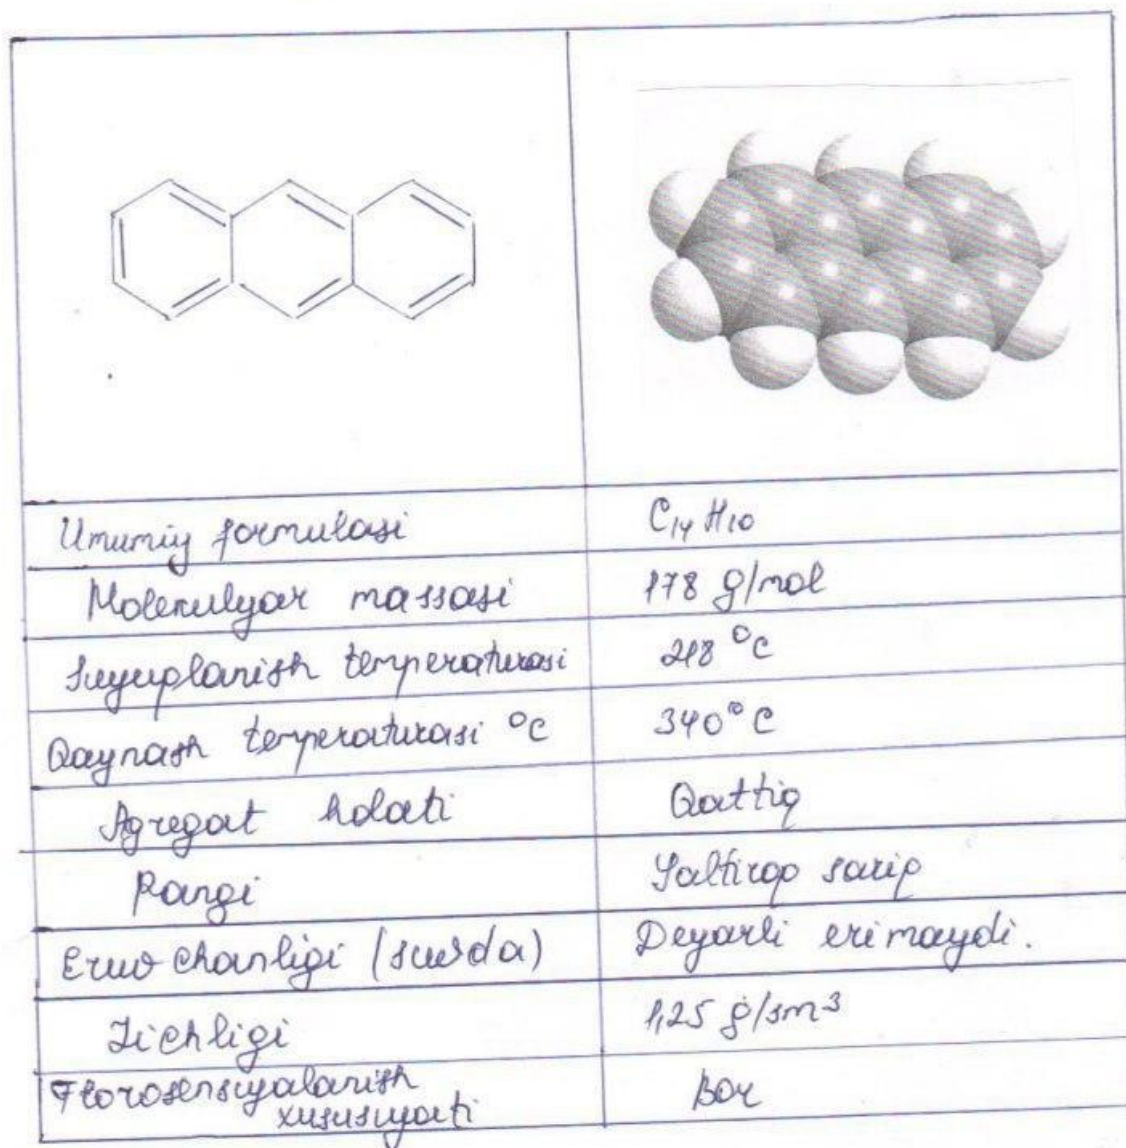 Umumiy formulasi C₁₄H₁₀
Molekulyar massasi 178 g/mol
Suyuqlanish temperaturasi 218 °C
Qaynash temperaturasi °C 340°C
Agregat holati Qattiq
Rangi Yaltiroq sariq
Eruvchanligi (suvda) Deyarli erimaydi.
Zichligi 1,25 g/sm³
Florosensiyalanish
xususiyati Bor